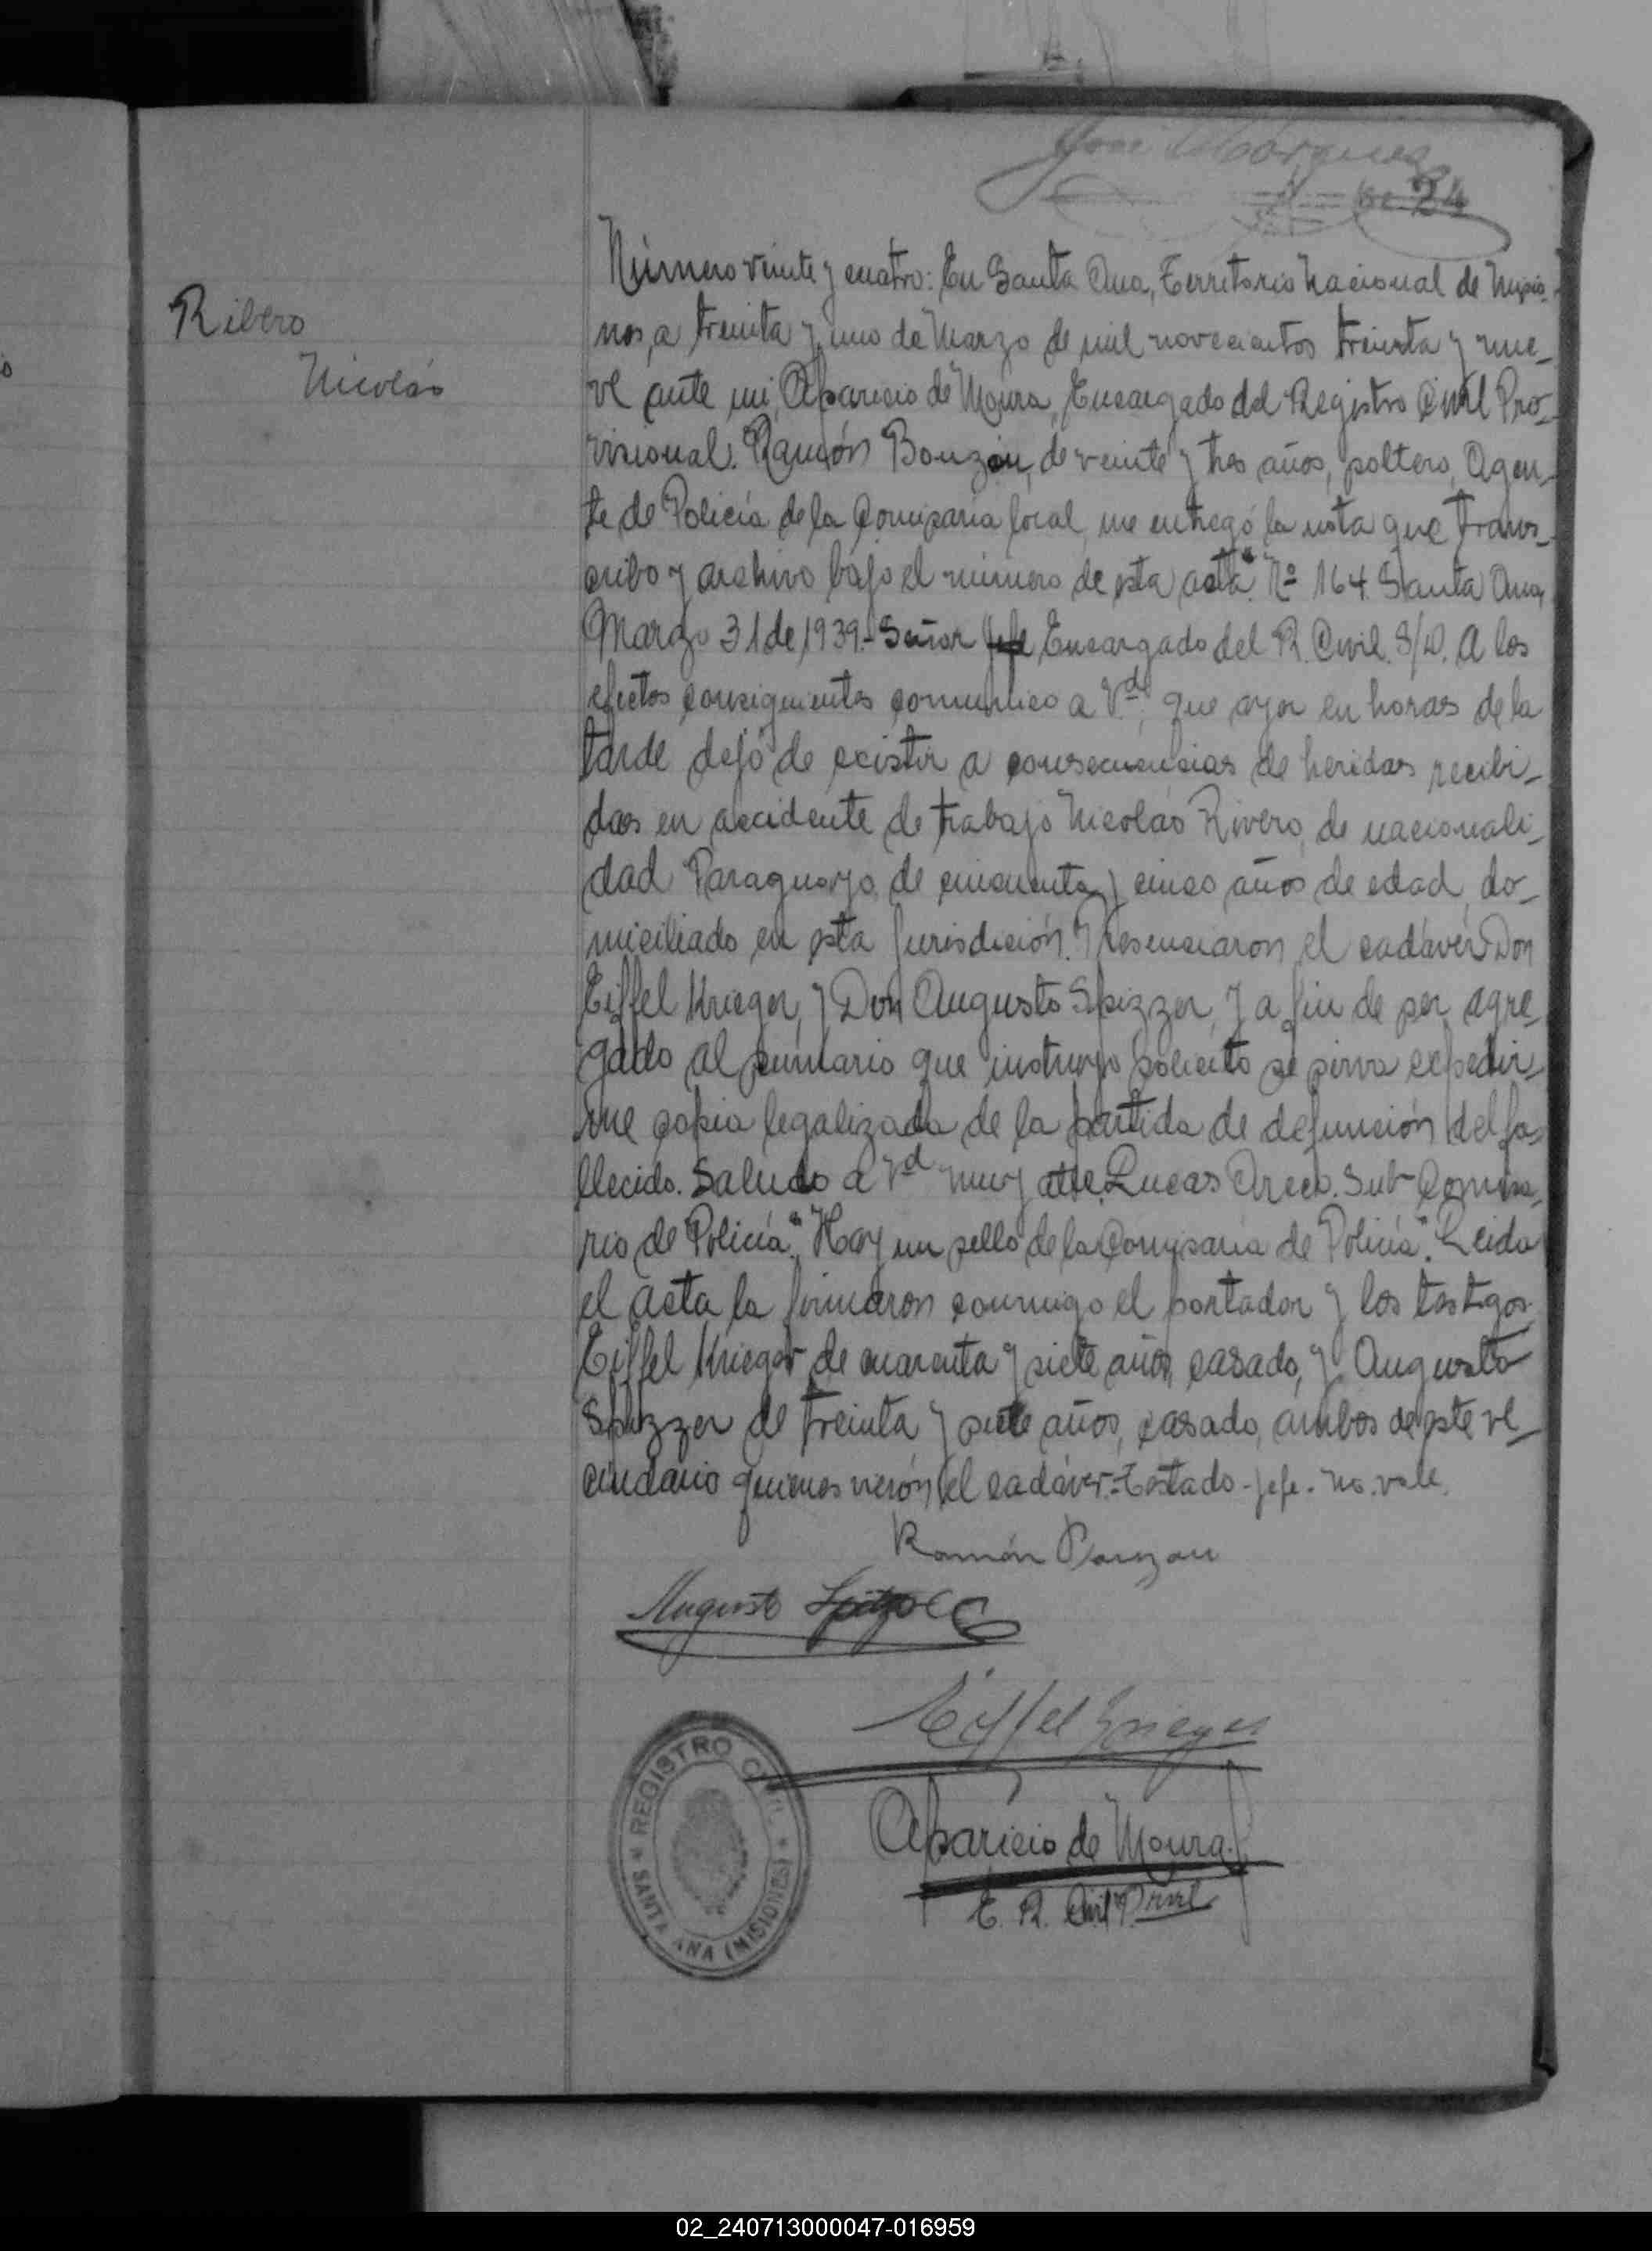 José Márquez
24
Ribero
Nicolás
Número veinte y cuatro: En Santa Ana, Territorio Nacional de Misio-
nes, a treinta y uno de Marzo de mil novecientos treinta y nue-
ve ante mi, Aparicio de Moura, Encargado del Registro Civil Pro-
visional. Ramón Bouzon, de veinte y tres años, soltero, Agen-
te de Policía de la Comisaria local, me entregó la nota que trans-
cribo y archivo bajo el número de esta acta." Nº 164. Santa Ana,
Marzo 31 de 1939.- Señor Jefe Encargado del R. Civil. S/D. A los
efectos consiguientes comunico a Vd. que ayer en horas de la
tarde dejó de existir a consecuencias de heridas recibi-
das en accidente de trabajo Nicolás Rivero, de nacionali-
dad Paraguayo, de cincuenta y cinco años de edad, do-
miciliado en esta jurisdición. Presenciaron el cadáver Don
Eiffel Krieger, y Don Augusto Spizzer, y a fin de ser agre-
gado al sumario que instruyo solicito se sirva expedir-
me copia legalizada de la partida de defunción del fa-
llecido. Saludo a Vd muy atte. Lucas Areco. Sub-Comisa-
rio de Policía." "Hay un sello de la Comisaria de Policía". Leida
el acta la firmaron conmigo el portador y los testigos
Eiffel Krieger de cuarenta y siete años, casado, y Augusto
Spizzer de treinta y siete años, casado, ambos de este ve-
cindario quienes vierón el cadáver.-Testado-Jefe-no vale.
Ramón Bouzon
Augusto Spitzer
Eiffel Krieger
Aparicio de Moura
E. R. Civil Prvl
REGISTRO CIVIL
SANTA ANA (MISIONES)
02_240713000047-016959